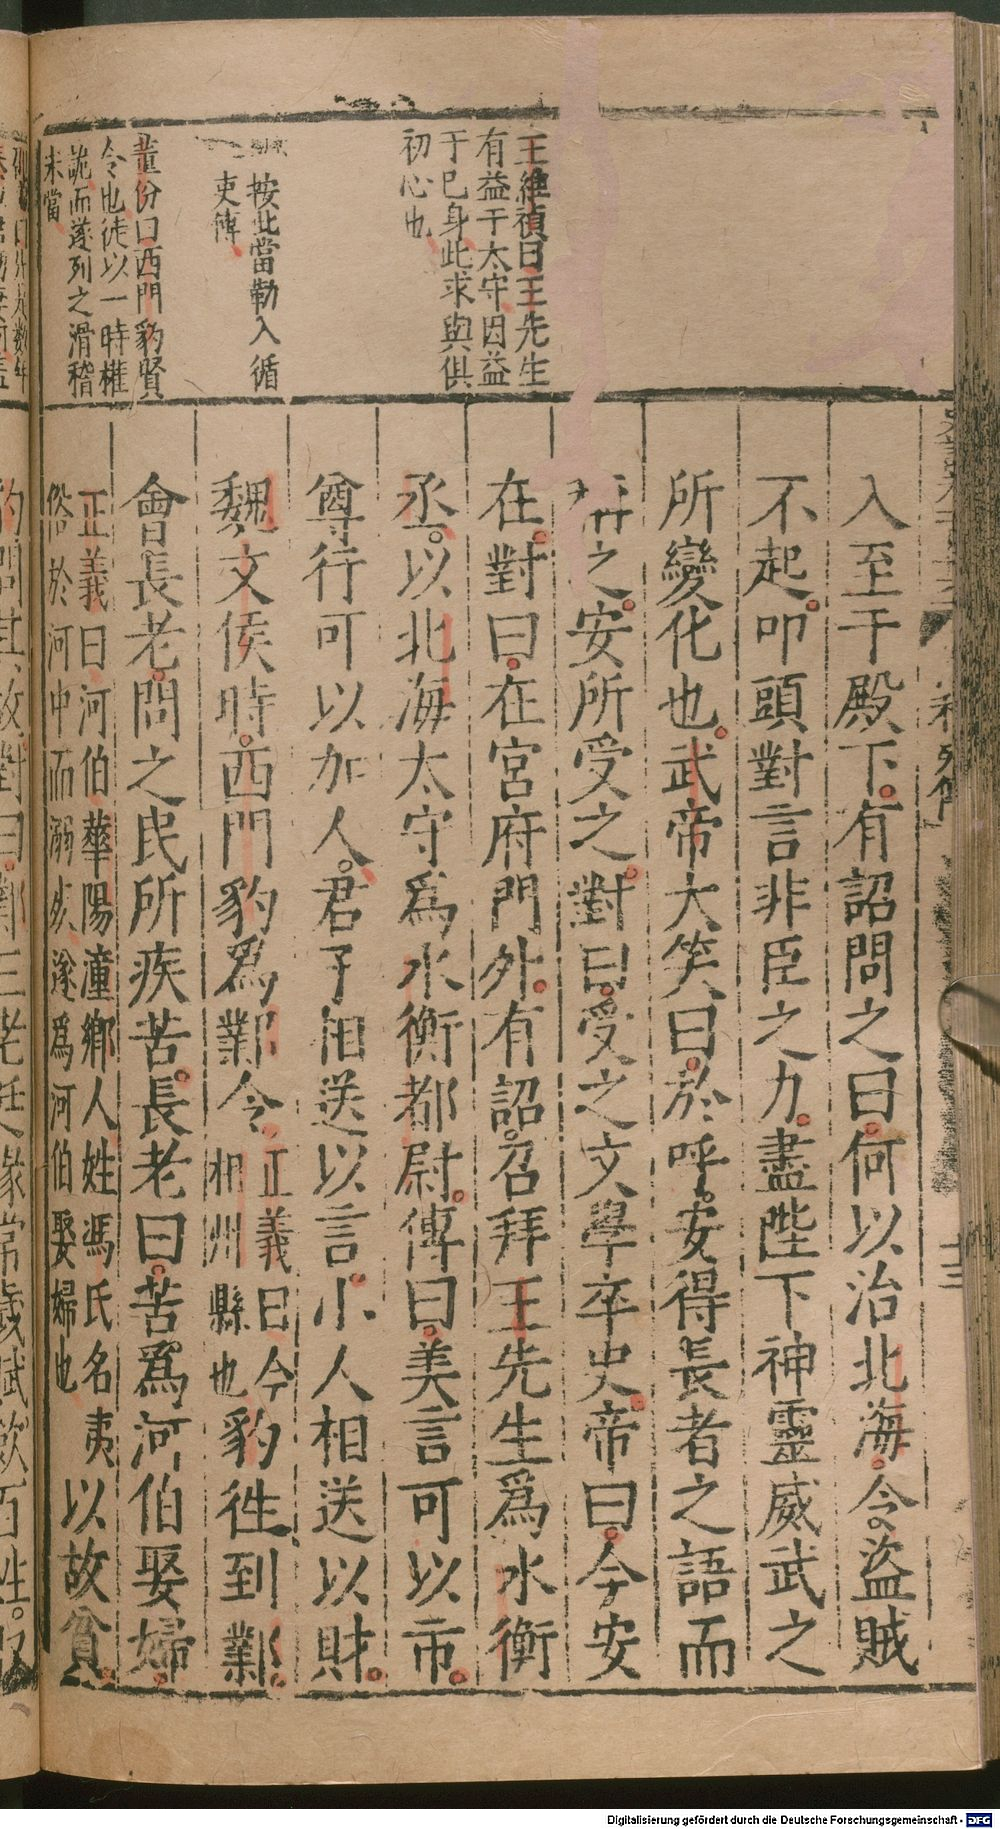 王維禎曰王先生
有益于太守因益
于巳身此求與俱
初心也
按此當勒入循
吏傳
董份曰西門豹賢
令也徒以一時權
詭而遂列之滑稽
未當
入至于殿下有詔問之曰何以治北海令盜賊
不起叩頭對言非臣之力盡陛下神靈威武之
所變化也武帝大笑曰於呼安得長者之語而
稱之安所受之對曰受之文學卒史帝曰今安
在對曰在宮府門外有詔召拜王先生爲水衡
丞以北海太守爲水衡都尉傳曰美言可以市
尊行可以加人君子相送以言小人相送以財
魏文侯時西門豹爲鄴令正義曰今
相州縣也豹徃到鄴
會長老問之民所疾苦長老曰苦爲河伯娶婦
正義曰河伯華陽潼鄉人姓馮氏名夷
俗於河中而溺死遂爲河伯娶婦也以故貧
豹問其故對曰鄴三老廷掾常歲賦歛百姓收
列傳
十三
Digitalisierung gefördert durch die Deutsche Forschungsgemeinschaft - DFG